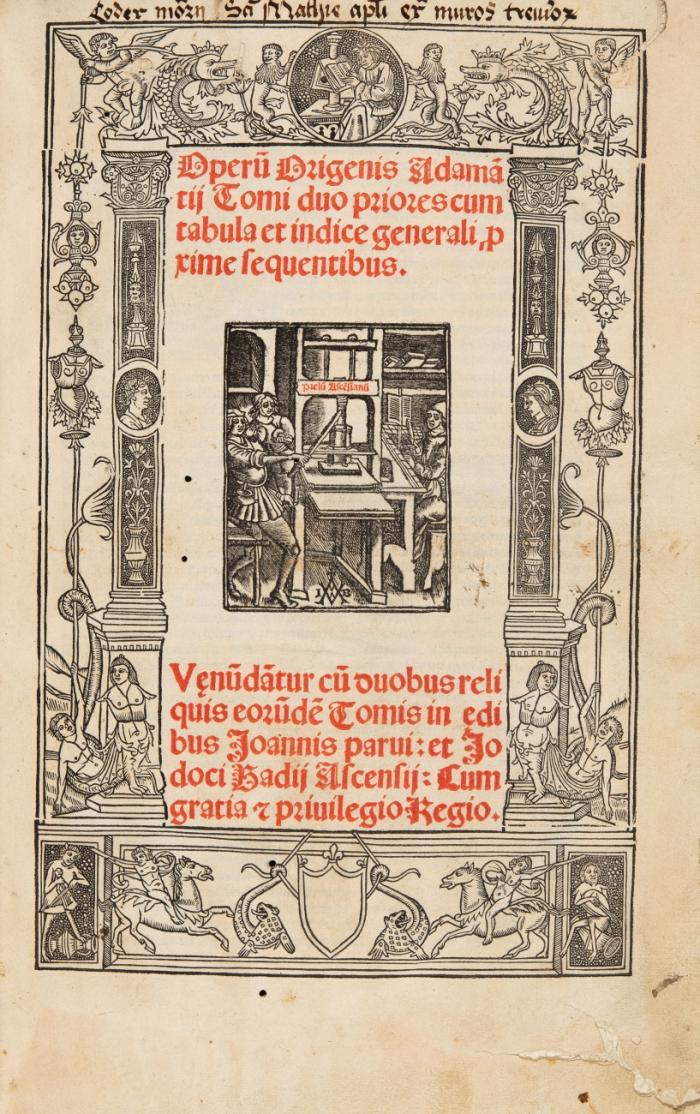 Codex mōrij Scī Mathie apłi ex͞ muros treuiroꝝ
Operū Origenis Adamā
tij Tomi duo priores cum
tabula et indice generali ꝓ
xime sequentibus.
prelū Ascēsianū
IVB
Vęnūdātur cū duobus reli
quis eorūdē Tomis in edi
bus Joannis parui: et Jo
doci Badij Ascensij: Cum
gratia ⁊ priuilegio Regio.